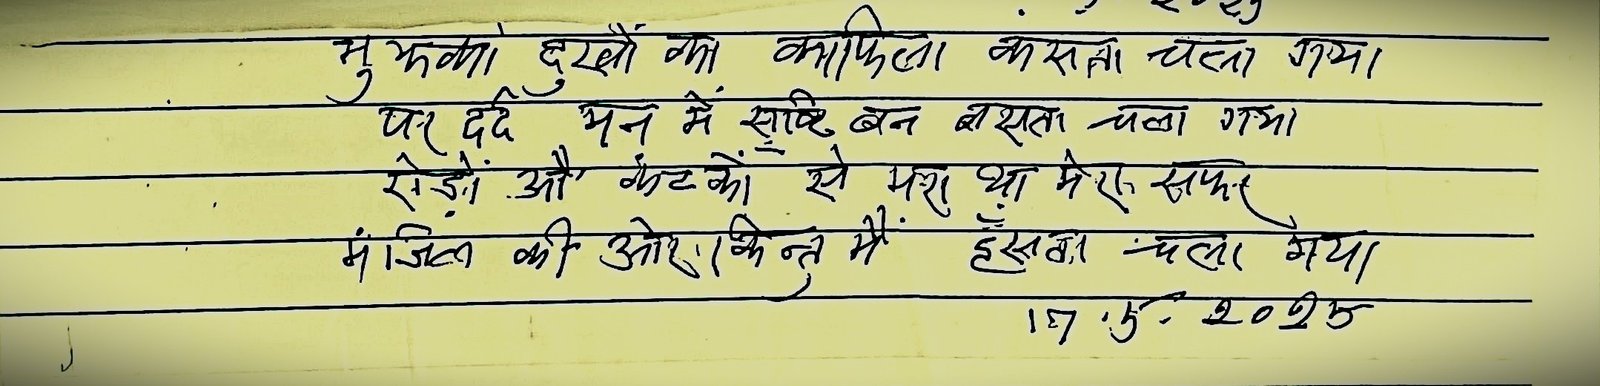 2025
मुझको दुखों का काफिला कसता चला गया
पर दर्द मन में सृष्टि बन बसता चला गया
रोड़ों औ कंटकों से भरा था मेरा सफर
मंजिल की ओर किन्तु मैं हँसता चला गया
17.5.2025